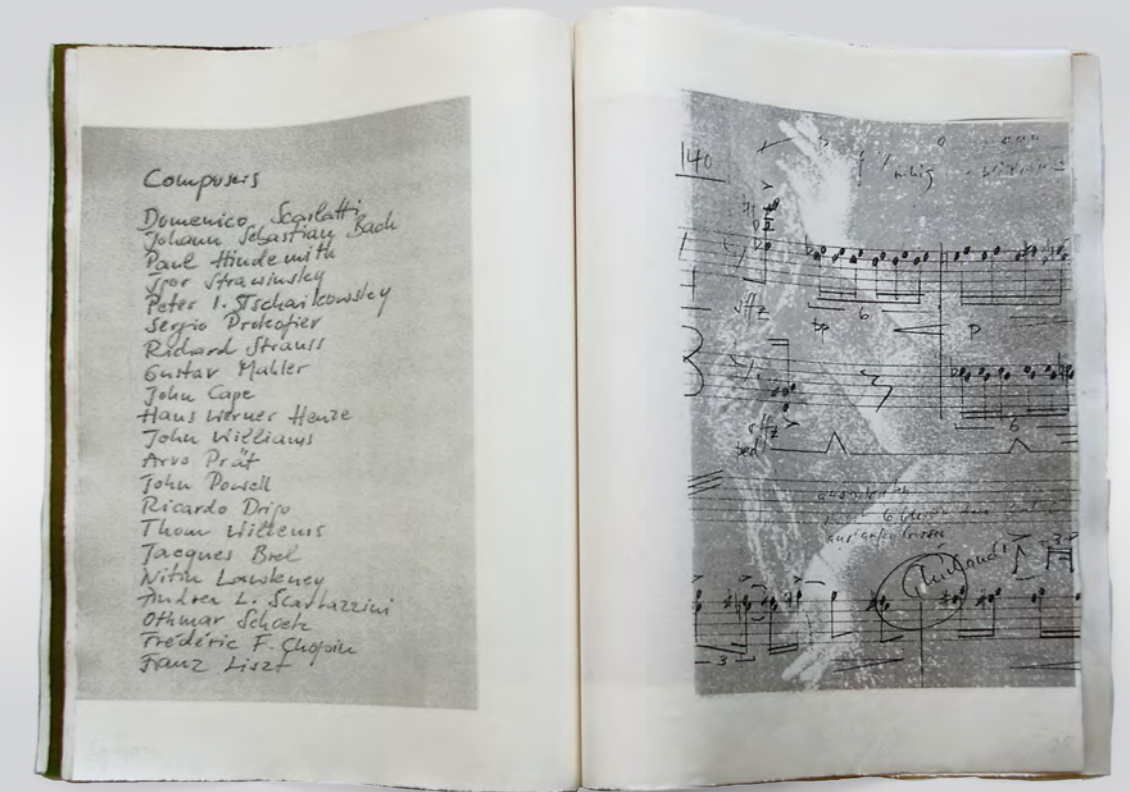 Composers
Domenico Scarlatti
Johann Sebastian Bach
Paul Hindemith
Igor Strawinsky
Peter I. Tschaikowsky
Sergio Prokofiev
Richard Strauss
Gustav Mahler
John Cage
Hans Werner Henze
John Williams
Arvo Prät
John Powell
Ricardo Drigo
Thom Willems
Jacques Brel
Nitin Sawhney
Andrea L. Scartazzini
Othmar Schoeck
Frédéric F. Chopin
Franz Liszt
140
sffz
6
pp
p
sffz
6
ped
3
3